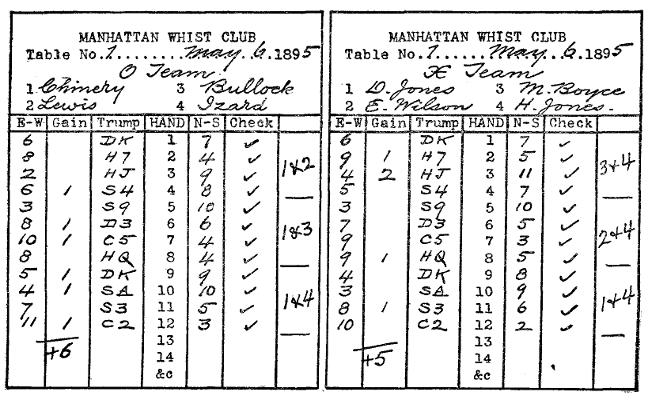 MANHATTAN WHIST CLUB
Table No. 1........May 6.1895
O Team
1 Chinery 3 Bullock
2 Lewis 4 Izard
E-W Gain Trump HAND N-S Check
6 DK 1 7 ✓
8 H7 2 4 ✓
2 HJ 3 9 ✓ 1&2
6 1 S4 4 8 ✓
3 S9 5 10 ✓
8 1 D3 6 6 ✓
10 1 C5 7 4 ✓ 1&3
8 HQ 8 4 ✓
5 1 DK 9 9 ✓
4 1 SA 10 10 ✓
7 S3 11 5 ✓ 1&4
11 1 C2 12 3 ✓
13
+6 14
&c
MANHATTAN WHIST CLUB
Table No. 1........May 6.1895
X Team
1 D. Jones 3 M. Boyce
2 E. Wilson 4 H. Jones.
E-W Gain Trump HAND N-S Check
6 DK 1 7 ✓
9 1 H7 2 5 ✓
4 2 HJ 3 11 ✓ 3&4
5 S4 4 7 ✓
3 S9 5 10 ✓
7 D3 6 5 ✓
9 C5 7 3 ✓ 2&4
9 1 HQ 8 5 ✓
4 DK 9 8 ✓
3 SA 10 9 ✓
8 1 S3 11 6 ✓ 1&4
10 C2 12 2 ✓
13
+5 14
&c